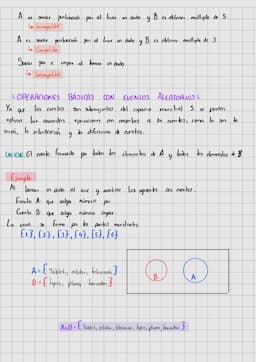 A es sacar puntuación par al lanzar un dado y B es obtener múltiplo de 5
↳ Incompatible
A es sacar puntuación par al lanzar un dado y B es obtener múltiplo de 3
↳ Compatible
Sacar par e impar al lanzar un dado
↳ Incompatible
OPERACIONES BÁSICAS CON EVENTOS ALEATORIOS:
Ya que los eventos son subconjuntos del espacio muestral S, se pueden
aplicar las conocidas operaciones con conjuntos a los eventos, como lo son la
unión, la intersección y la diferencia de eventos.
UNION: El evento formado por todos los elementos de A y todos los elementos de B
Ejemplo
Al lanzar un dado al azar y analizar los siguientes dos eventos.
Evento A: que salga número par
Evento B: que salga número impar.
La unión se forma por los puntos muestrales
{1}, {2}, {3}, {4}, {5}, {6}
A = { Tablet, celular, }
B = { lapiz, pluma, borrador }
B
A
AUB = { Tablet, celular, lapiz, pluma, borrador }